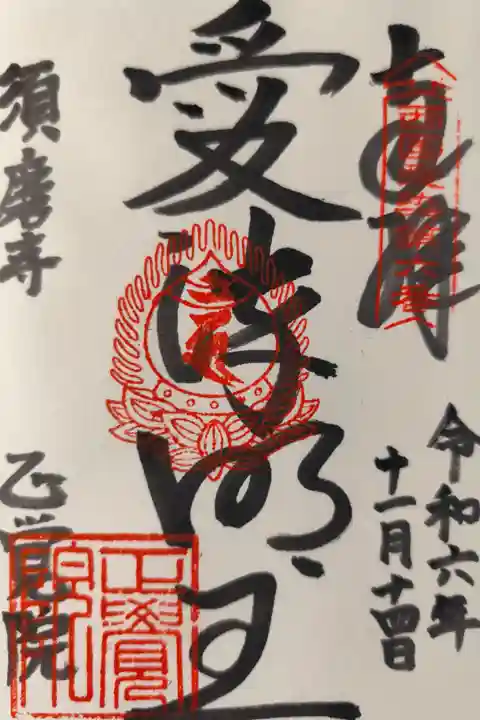 奉拝
令和六年
十一月十四日
愛染明王
須磨寺
正覚院
正覺院印